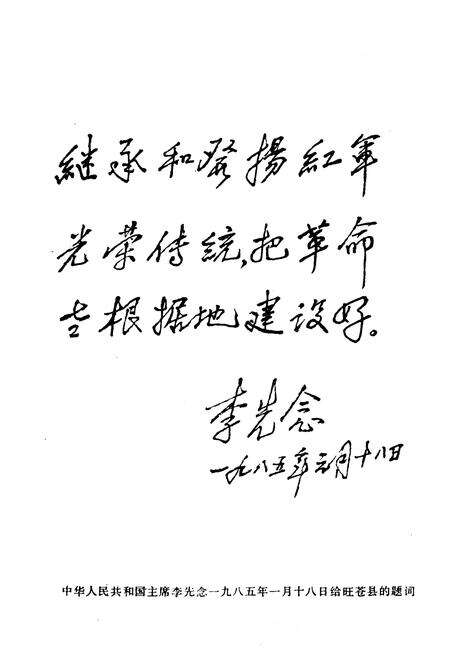 継承和發揚紅軍
光荣传统,把革命
老根据地建设好。
李先念
一九八五年元月十八日
中华人民共和国主席李先念一九八五年一月十八日给旺苍县的题词